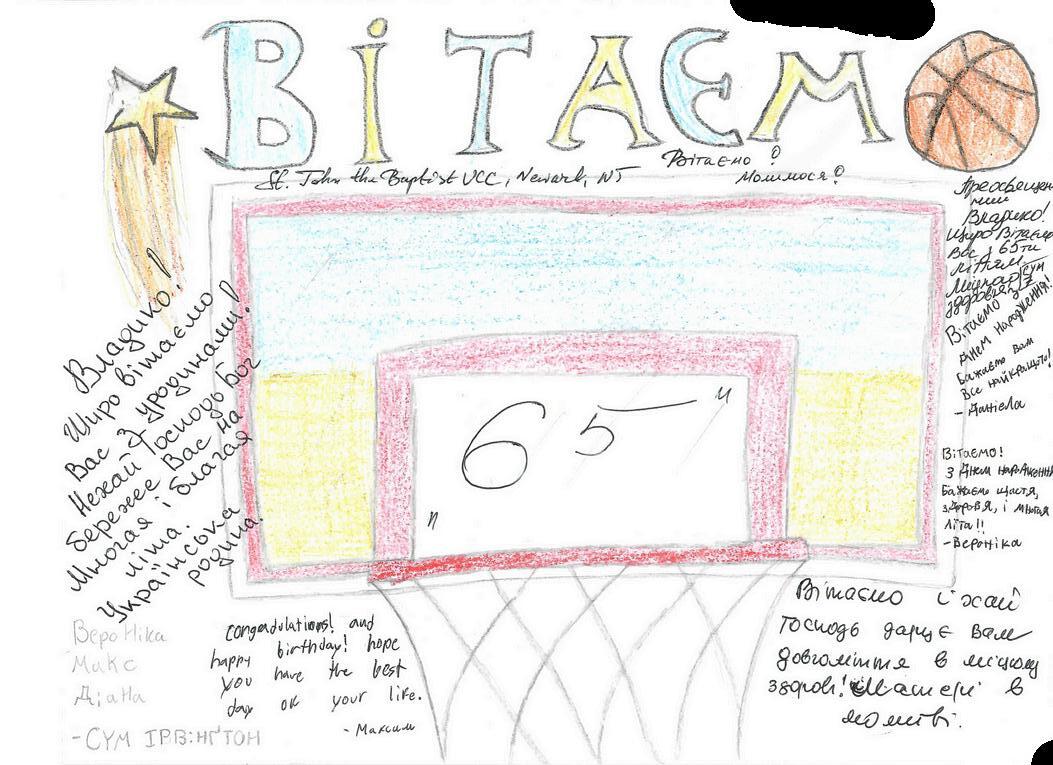 ВІТАЄМ
St. John the Baptist UCC, Newark, NJ
Вітаємо!
Молимося!
Владико!
Щиро вітаємо
Вас з уродинами!
Нехай Господь Бог
береже Вас на
Многая і благая
літа.
Українська
родина!
65
Преосвященний
Владико!
Щиро Вітаємо
Вас з 65ти
літтям
Міцного
здоровля!
СУМ
Вітаємо з
Днем Народження!
Бажаємо Вам
Все найкращого!
- Даніела
Вітаємо!
З Днем народження
Бажаємо щастя,
здоровя, і многая
літа!!
- Вероніка
Вероніка
Макс
Діана
- СУМ ІРВІНҐТОН
congradulations! and
happy birthday! hope
you have the best
day ok your life.
- Максим
Вітаємо і хай
Господь дарує Вам
довголіття в міцному
здоров'ї! Матері в
молитві.